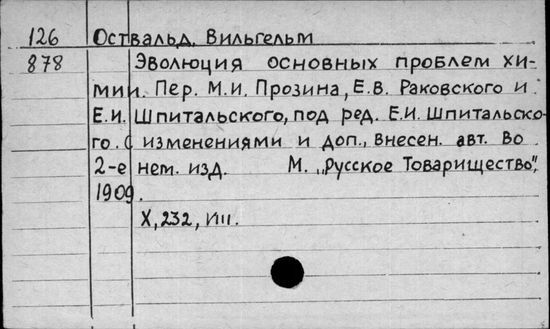 126 Оствальд, Вильгельм
878 Эволюция основных проблем хи-
мии. Пер. М.И. Прозина, Е.В. Раковского и
Е.И. Шпитальского, под ред. Е.И. Шпитальско-
го. С изменениями и доп., внесен. авт. во
2-е нем. изд. М. „Русское Товарищество",
1909.
X, 232, илл.